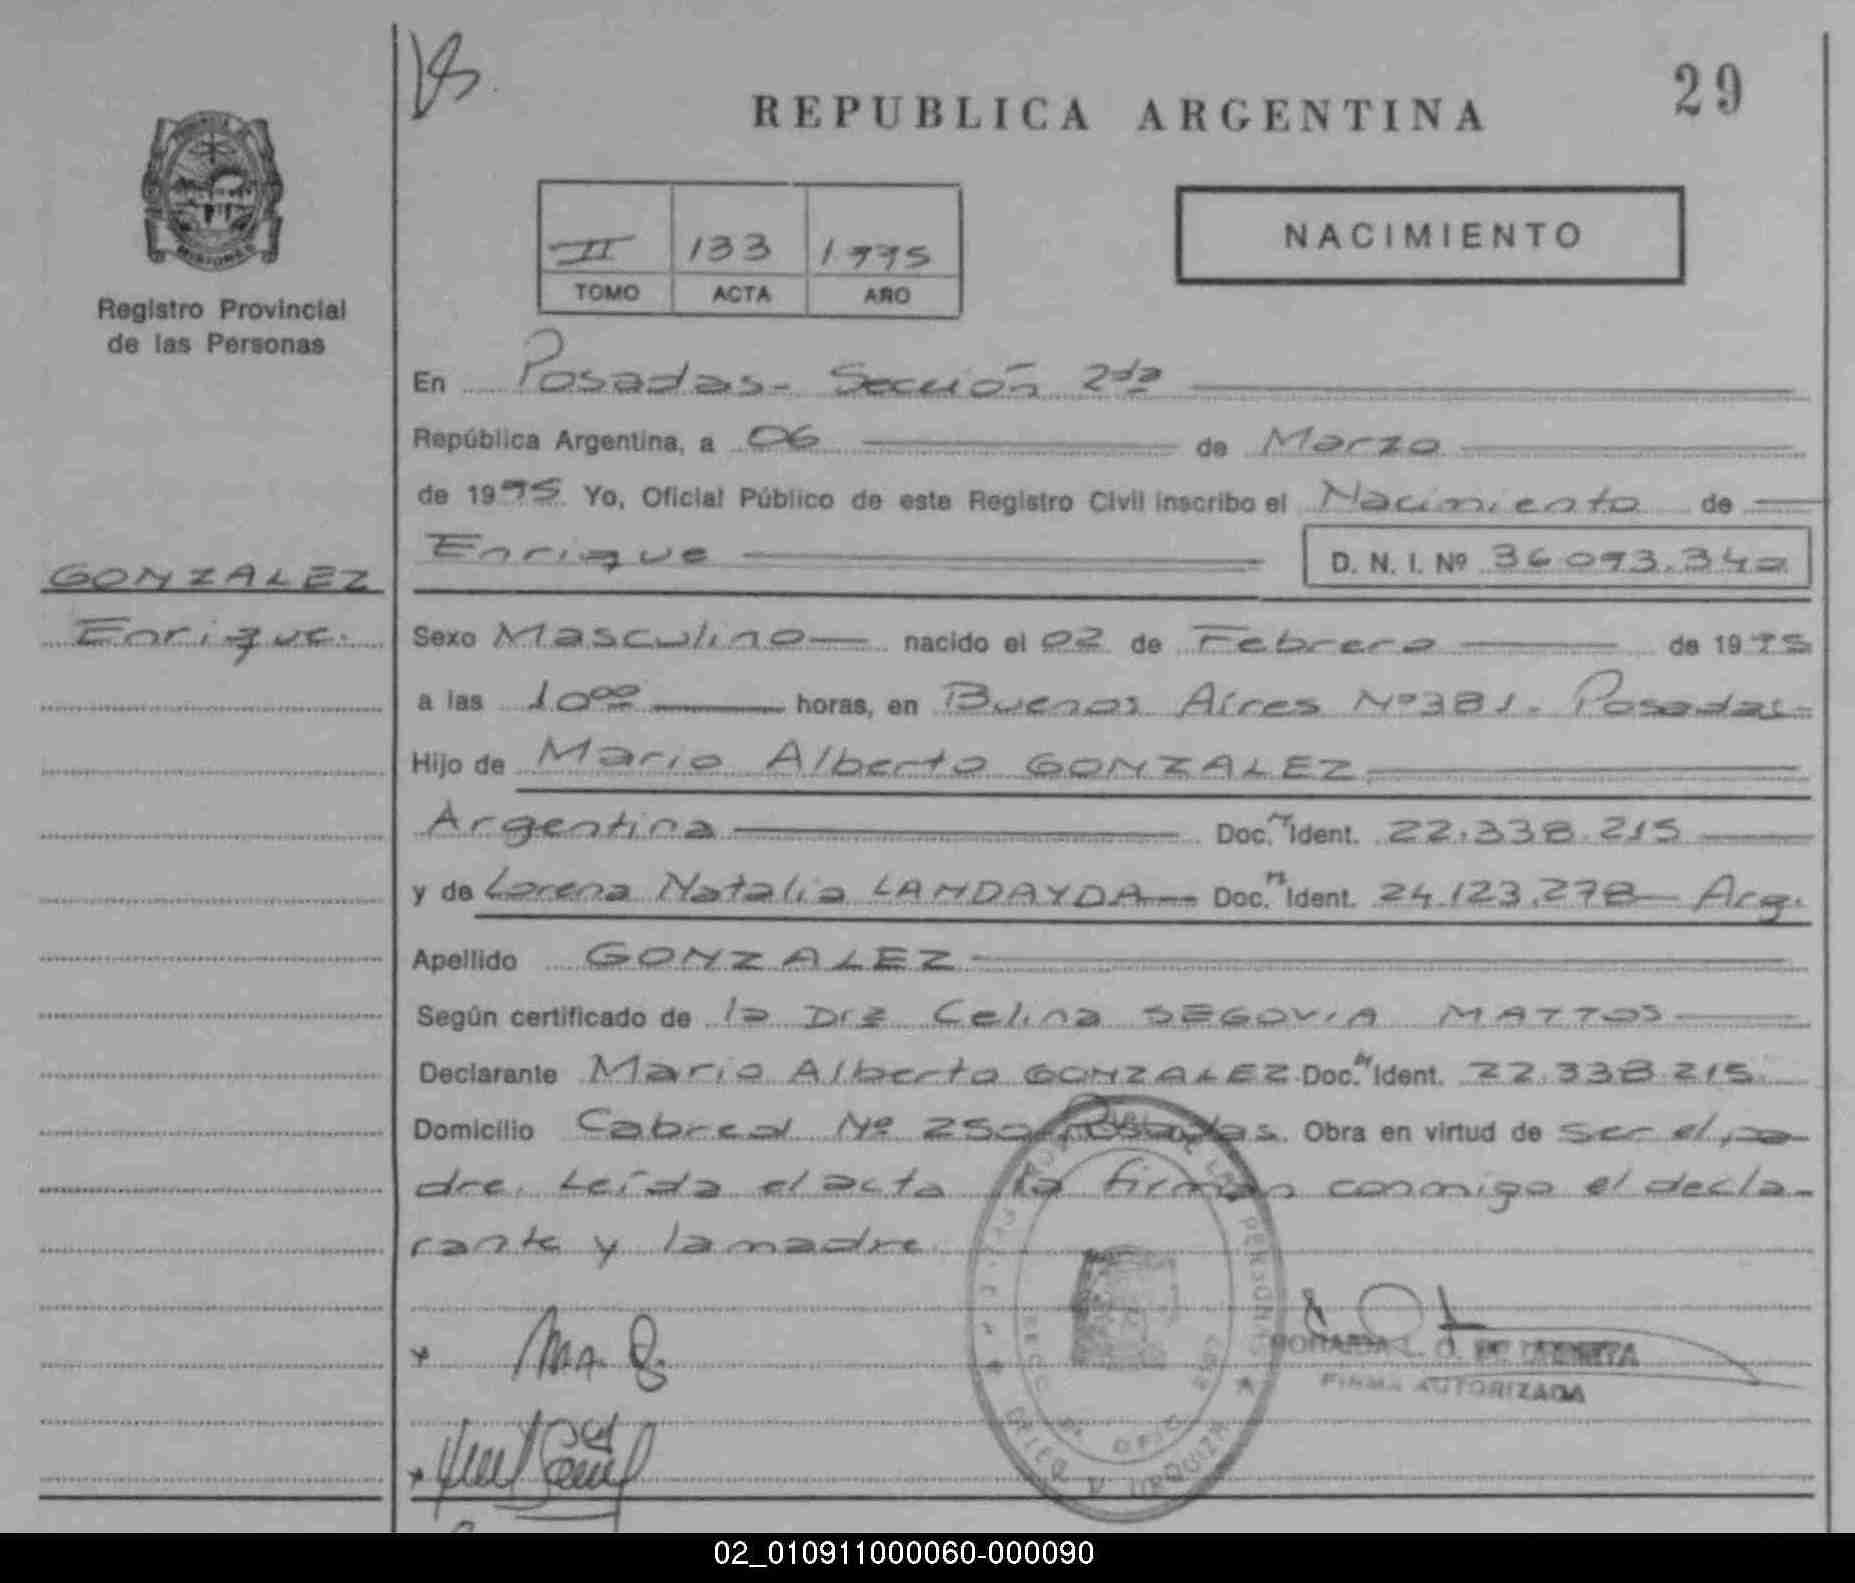 29
REPUBLICA ARGENTINA
MISIONES
Registro Provincial
de las Personas
II 133 1995
TOMO ACTA AÑO
NACIMIENTO
En Posadas - Sección 2da
República Argentina, a 06 de Marzo
de 1995 Yo, Oficial Público de este Registro Civil inscribo el Nacimiento de
Enrique D. N. I. Nº 36.093.340
GONZALEZ
Enrique.
Sexo Masculino nacido el 02 de Febrero de 1995
a las 10ºº horas, en Buenos Aires Nº 381. Posadas-
Hijo de Mario Alberto GONZALEZ
Argentina Doc. Ident. 22.338.215
y de Lorena Natalia LANDAYDA Doc. Ident. 24.123.278 Arg.
Apellido GONZALEZ
Según certificado de la Dra Celina SEGOVIA MATTOS
Declarante Mario Alberto GONZALEZ Doc. Ident. 22.338.215
Domicilio Cabred Nº 250 Posadas. Obra en virtud de ser el pa-
dre. Leída el acta la firman conmigo el decla-
rante y la madre.
FIRMA AUTORIZADA
02_010911000060-000090